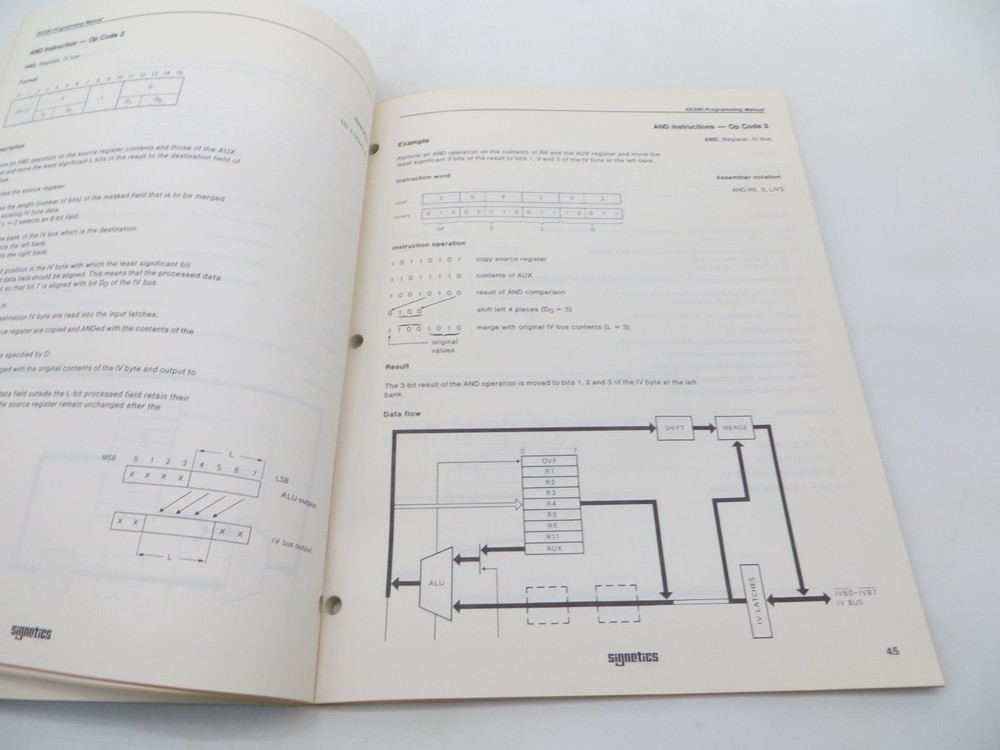 AND Instruction — Op Code 2
AND: Register, IV bus
Format
0 1 2 3 4 5 6 7 8 9 10 11 12 13 14 15
S
L
D
D1 D0
an AND operation on the source register contents and those of the AUX
and move the least significant L bits of the result to the destination field of
the source register.
the length (number of bits) of the masked field that is to be merged
existing IV byte data.
L = 0 selects an 8-bit field.
bank of the IV bus which is the destination:
the left bank.
the right bank.
position in the IV byte with which the least significant bit
data field should be aligned. This means that the processed data
so that bit 7 is aligned with bit D0 of the IV bus.
is:
IV byte are read into the input latches;
register are copied and ANDed with the contents of the
as specified by D:
with the original contents of the IV byte and output to
data field outside the L-bit processed field retain their
the source register remain unchanged after the
L
MSB 0 1 2 3 4 5 6 7 LSB
X X X X
ALU output
X X X X
IV bus output
L
signetics
8X300 Programming Manual
AND Instructions — Op Code 2
AND: Register, IV bus
Example
Perform an AND operation on the contents of R6 and the AUX register and move the
least significant 3 bits of the result to bits 1, 2 and 3 of the IV byte at the left bank.
Instruction word
Assembler notation
AND R6, 3, LIV3
octal 2 0 6 3 2 3
binary 0 1 0 0 0 1 1 0 0 1 1 1 0 0 1 1
OP S L D
Instruction operation
1 0 1 1 0 1 0 1 copy source register
1 1 0 1 1 1 1 0 contents of AUX
1 0 0 1 0 1 0 0 result of AND comparison
0 1 0 0 shift left 4 places (D0 = 3)
1 1 0 0 1 0 1 0 merge with original IV bus contents (L = 3)
original
values
Result
The 3-bit result of the AND operation is moved to bits 1, 2 and 3 of the IV byte at the left
bank.
Data flow
SHIFT
MERGE
0 7
OVF
R1
R2
R3
R4
R5
R6
R11
AUX
ALU
IV LATCHES
IVB0-IVB7
IV BUS
signetics
45